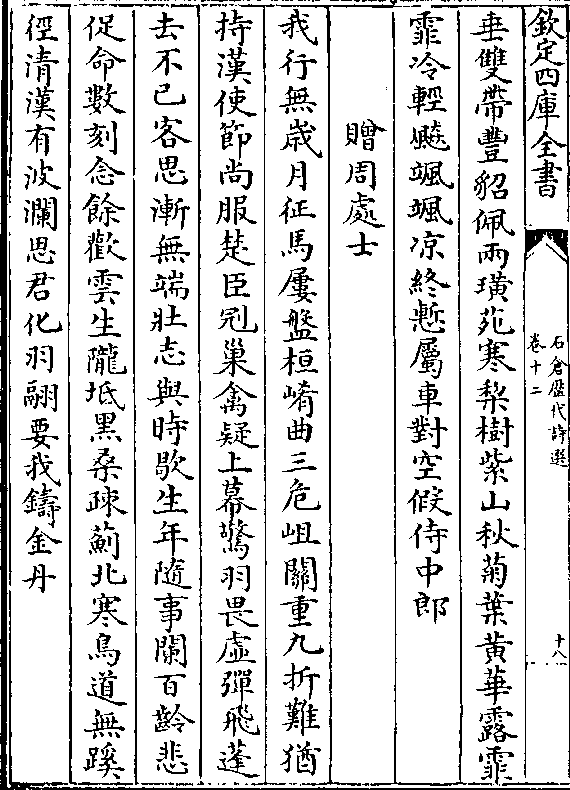 欽定四庫全書
石倉歷代詩選
卷十二
十八
垂雙帶豐貂佩兩璜苑寒梨樹紫山秋菊葉黃華露霏
霏冷輕飈颯颯凉終慙屬車對空假侍中郎
贈周處士
我行無歲月征馬屢盤桓崤曲三危岨關重九折難猶
持漢使節尚服楚臣冠巢禽疑上幕驚羽畏虛彈飛蓬
去不已客思漸無端壯志與時歇生年隨事闌百齡悲
促命數刻念餘歡雲生隴坻黑桑疎薊北寒鳥道無蹊
徑清漢有波瀾思君化羽翮要我鑄金丹